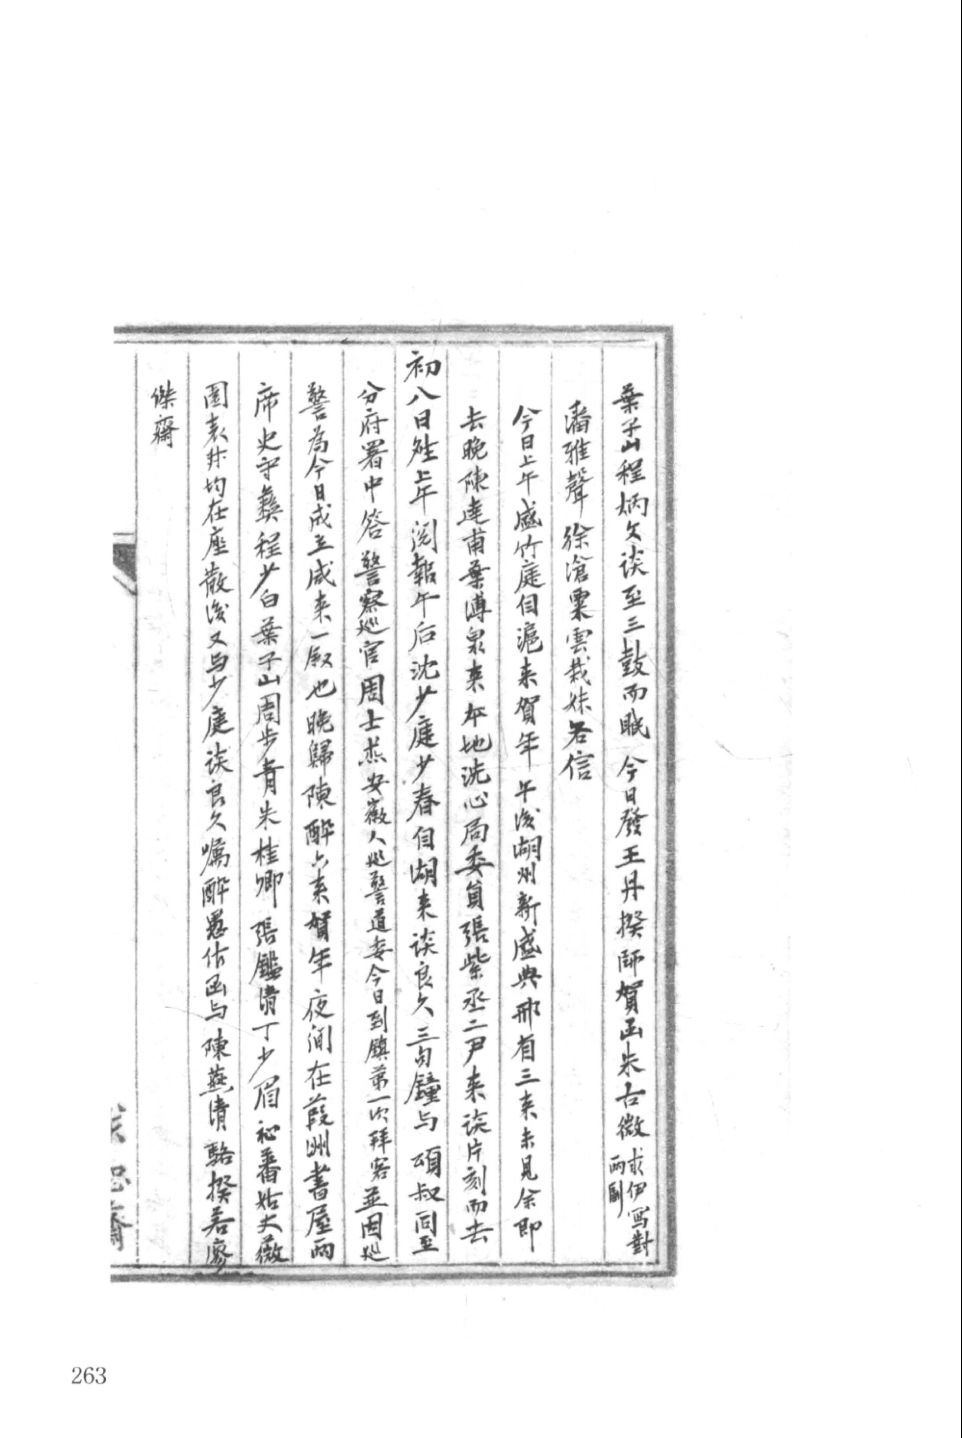 葉子山程炳文談至三鼓而眠　今日發王丹揆師賀函朱古微求伊寫對兩副
潘雅聲徐滄粟雲裁妹各信
今日上午盛竹庭自滬来賀年　午後湖州新盛典邢省三来未見余即
去晚陳達甫葉溥泉来　地洗心局委員張紫丞二尹来談片刻而去
初八日　上午閱報午后沈少庭少春自湖来談良久三句鐘与頌叔同至
分府署中答警察巡官周士杰安徽人巡警道委今日到鎮第一次拜客並因巡
警為今日成立咸来一叙也晚歸陳醉六来賀年夜間在葭洲書屋兩
席史守彝程少白葉子山周步青朱桂卿張鑑清丁少眉　蕃姑丈薇
園表　均在座散後又与少庭談良久囑醉愚作函与陳燕清駱揆若廖
傑齋
263